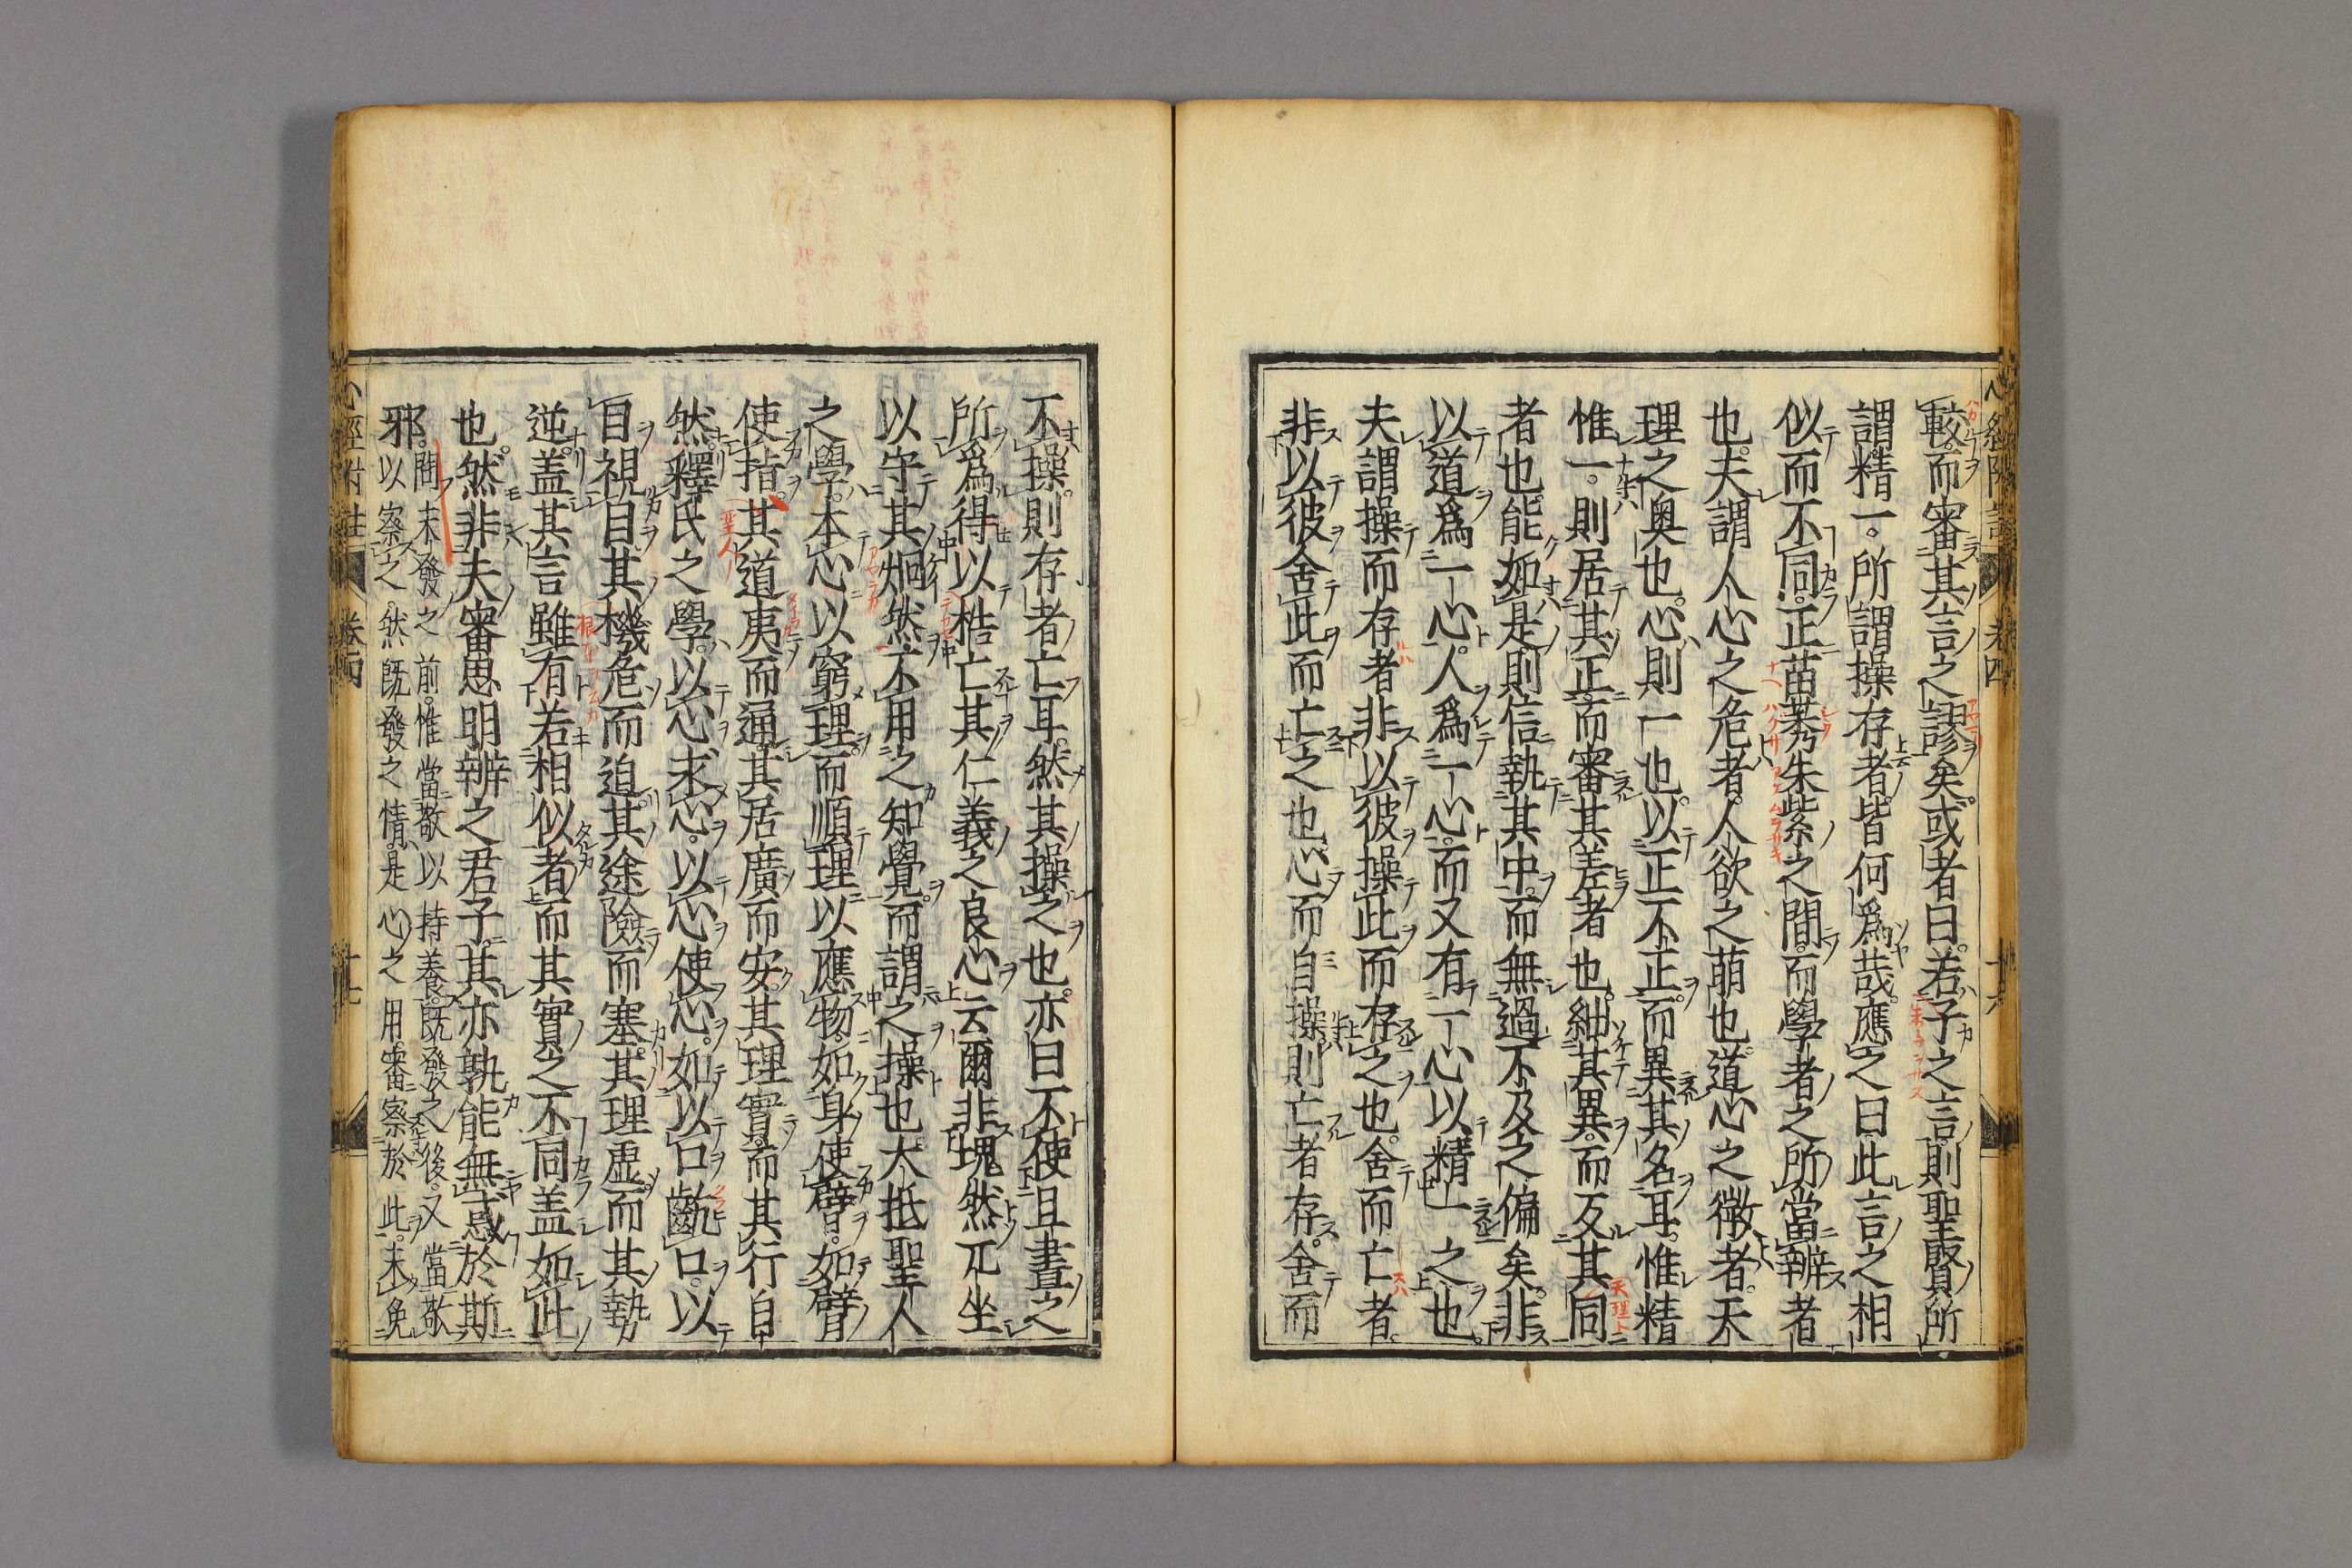 較而審其言之謬矣或者曰若子之言則聖賢所
謂精一所謂操存者皆何爲哉應之曰此言之相
似而不同正苗莠朱紫之間而學者之所當辨者
也夫謂人心之危者人欲之萌也道心之微者天
理之奧也心則一也以正不正而異其名耳惟精
惟一則居其正而審其差者也絀其異而反其同
者也能如是則信執其中而無過不及之偏矣非
以道爲一心人爲一心而又有一心以精一之也
夫謂操而存者非以彼操此而存之也舍而亡者
非以彼舍此而亡之也心而自操則亡者存舍而
不操則存者亡耳然其操之也亦曰不使旦晝之
所爲得以梏亡其仁義之良心云爾非塊然兀坐
以守其炯然不用之知覺而謂之操也大抵聖人
之學本心以窮理而順理以應物如身使臂如臂
使指其道夷而通其居廣而安其理實而其行自
然釋氏之學以心求心以心使心如以口齕口以
目視目其機危而迫其途險而塞其理虛而其勢
逆盖其言雖有若相似者而其實之不同盖如此
也然非夫審思明辨之君子其亦孰能無惑於斯
邪
問未發之前惟當敬以持養既發之後又當敬
以察之然既發之情是心之用審察於此未免
心經附註 卷四 十六
心經附註 卷四 十七